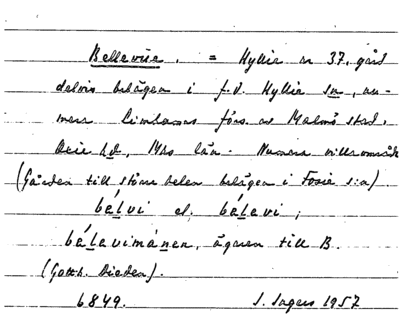 Bellevue. = Hyllie nr 37, gård
delvis belägen i f.d. Hyllie sn, nu-
mera Limhamns förs. av Malmö stad.
Oxie hd, Mhs län. Numera villaområde
(Gården till större delen belägen i Fosie s:n)
bélvi el. bélevi,
bélevimánen, ägaren till B.
(Gotth. Dieden).
6849. I. Ingers 1957